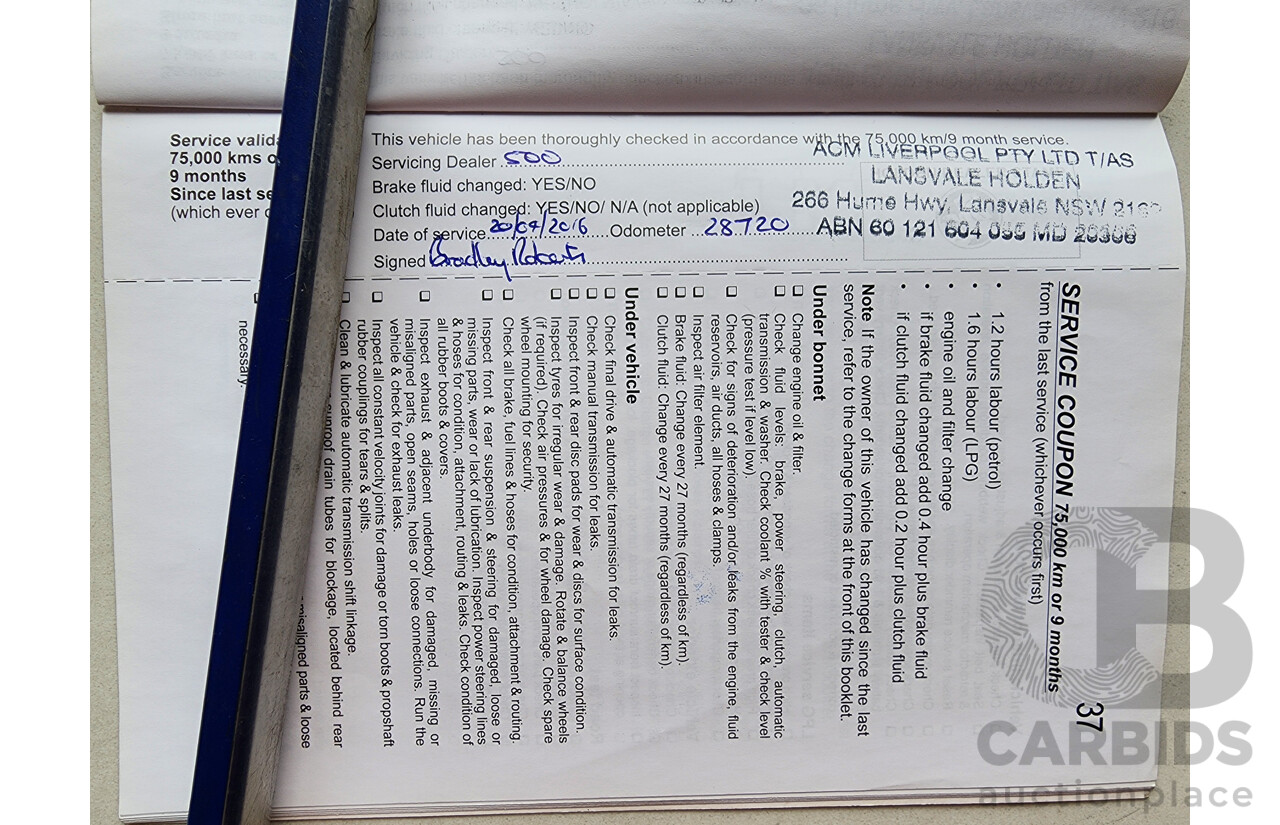 Service valid
75,000 kms o
9 months
Since last se
(which ever
This vehicle has been thoroughly checked in accordance with the 75,000 km/9 month service.
Servicing Dealer 500
Brake fluid changed: YES/NO
Clutch fluid changed: YES/NO/ N/A (not applicable)
Date of service 20/04/2016 Odometer 28720
Signed Bradley Roberts
ACM LIVERPOOL PTY LTD T/AS
LANSVALE HOLDEN
266 Hume Hwy, Lansvale NSW
ABN 60 121 604 095 MD
37
SERVICE COUPON 75,000 km or 9 months
from the last service (whichever occurs first)
• 1.2 hours labour (petrol)
• 1.6 hours labour (LPG)
• engine oil and filter change
• if brake fluid changed add 0.4 hour plus brake fluid
• if clutch fluid changed add 0.2 hour plus clutch fluid
Note If the owner of this vehicle has changed since the last
service, refer to the change forms at the front of this booklet.
Under bonnet
❑ Change engine oil & filter.
❑ Check fluid levels: brake, power steering, clutch, automatic
transmission & washer. Check coolant % with tester & check level
(pressure test if level low).
❑ Check for signs of deterioration and/or leaks from the engine, fluid
reservoirs, air ducts, all hoses & clamps.
❑ Inspect air filter element.
❑ Brake fluid: Change every 27 months (regardless of km).
❑ Clutch fluid: Change every 27 months (regardless of km).
Under vehicle
❑ Check final drive & automatic transmission for leaks.
❑ Check manual transmission for leaks.
❑ Inspect front & rear disc pads for wear & discs for surface condition.
❑ Inspect tyres for irregular wear & damage. Rotate & balance wheels
(if required). Check air pressures & for wheel damage. Check spare
wheel mounting for security.
❑ Check all brake, fuel lines & hoses for condition, attachment & routing.
❑ Inspect front & rear suspension & steering for damaged, loose or
missing parts, wear or lack of lubrication. Inspect power steering lines
& hoses for condition, attachment, routing & leaks. Check condition of
all rubber boots & covers.
❑ Inspect exhaust & adjacent underbody for damaged, missing or
misaligned parts, open seams, holes or loose connections. Run the
vehicle & check for exhaust leaks.
❑ Inspect all constant velocity joints for damage or torn boots & propshaft
rubber couplings for tears & splits.
❑ Clean & lubricate automatic transmission shift linkage.
sunroof drain tubes for blockage, located behind rear
misaligned parts & loose
necessary.
CB
CARBIDS
auctionplace